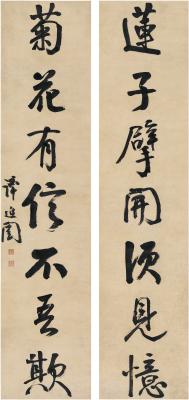 蓮子擘開須見憶
菊花有信不吾欺
譚延闓